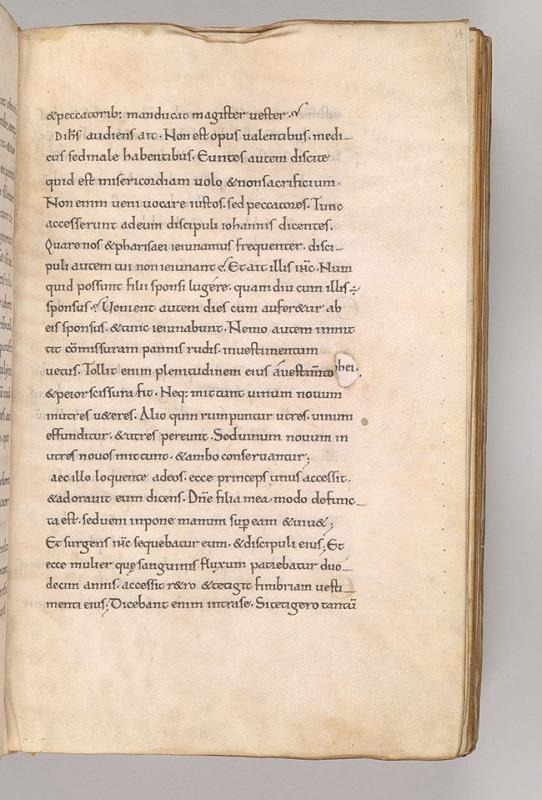 &peccatorib: manducat magister vester.
Dihs audiens ait. Non est opus valentibus. medi-
cus sed male habentibus. Euntes autem discite
quid est misericordiam uolo & non sacrificium.
Non enim veni vocare iustos. sed peccatores. Tunc
accesserunt adeum discipuli iohannis dicentes.
Quare nos & pharisaei ieiunamus frequenter. disci-
puli autem tui non ieiunant. Et ait illis ihc. Num
quid possunt filii sponsi lugere. quam diu cum illis
sponsus. Uenient autem dies cum aufer&ur ab
eis sponsus. & tunc ieiunabunt. Nemo autem inmit
tit cōmissuram pannis rudis. inuestimentum
uetus. Tollit enim plenitudinem eius auestimto
& peior scissura fit. Neq: mittunt uinum nouum
inutres u&eres. Alioquin rumpuntur utres. uinum
effunditur. & utres pereunt. Seduinum nouum in
utres nouos mittunt. & ambo conservantur;
aec illo loquente adeos. ecce princeps unus accessit.
& adoravit eum dicens. Dn̄e filia mea modo defunc
ta est. sedveni inpone manum sup eam & uiu&;
Et surgens ihc sequebatur eum. & discipuli eius; Et
ecce mulier quę sanguinis fluxum patiebatur duo
decim annis. accessit r&ro & tetigit fimbriam vesti
menti eius; Dicebant enim intrase. Si tetigero tantū